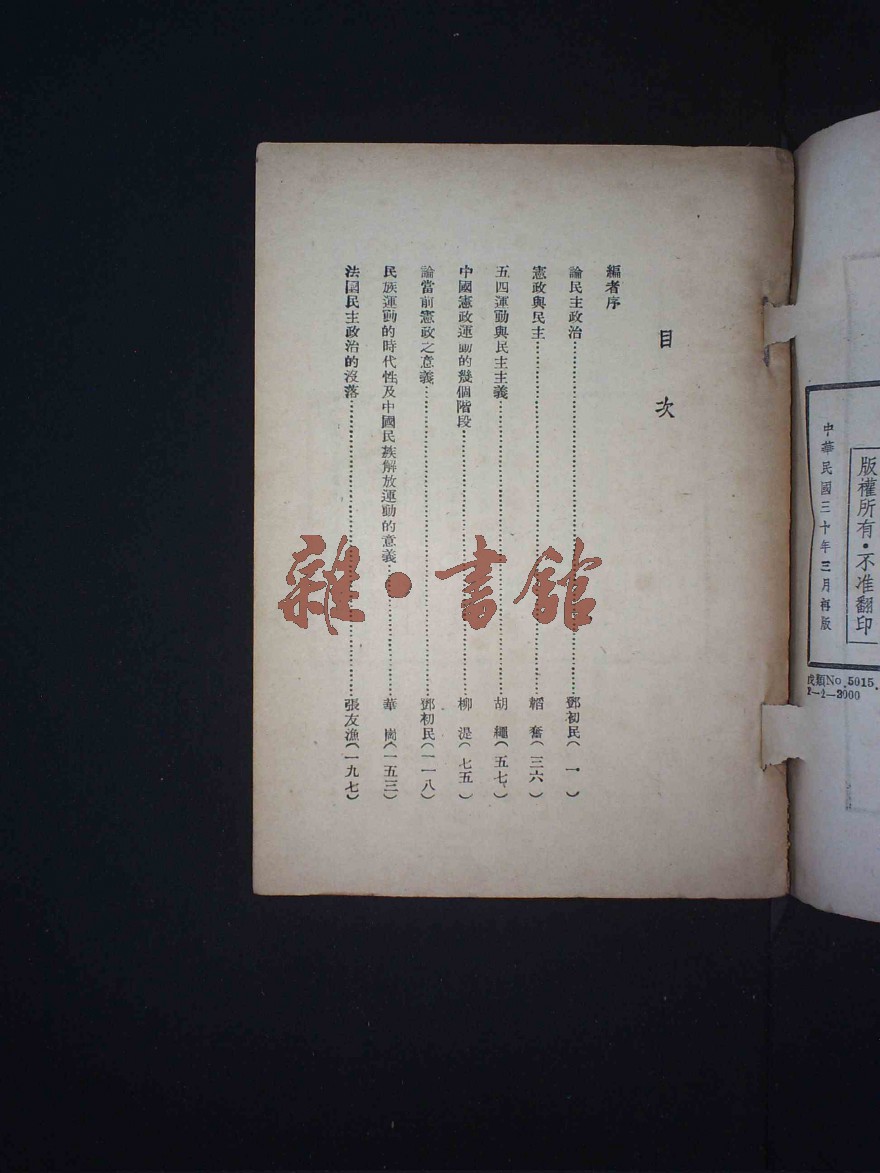 版權所有・不准翻印
中華民國三十年三月再版
No. 5015.
目次
編者序
論民主政治……鄧初民(一)
憲政與民主……韜奮(三六)
五四運動與民主主義……胡繩(五七)
中國憲政運動的幾個階段……柳湜(七五)
論當前憲政之意義……鄧初民(一一八)
民族運動的時代性及中國民族解放運動的意義……華崗(一五三)
法國民主政治的沒落……張友漁(一九七)
雜・書館